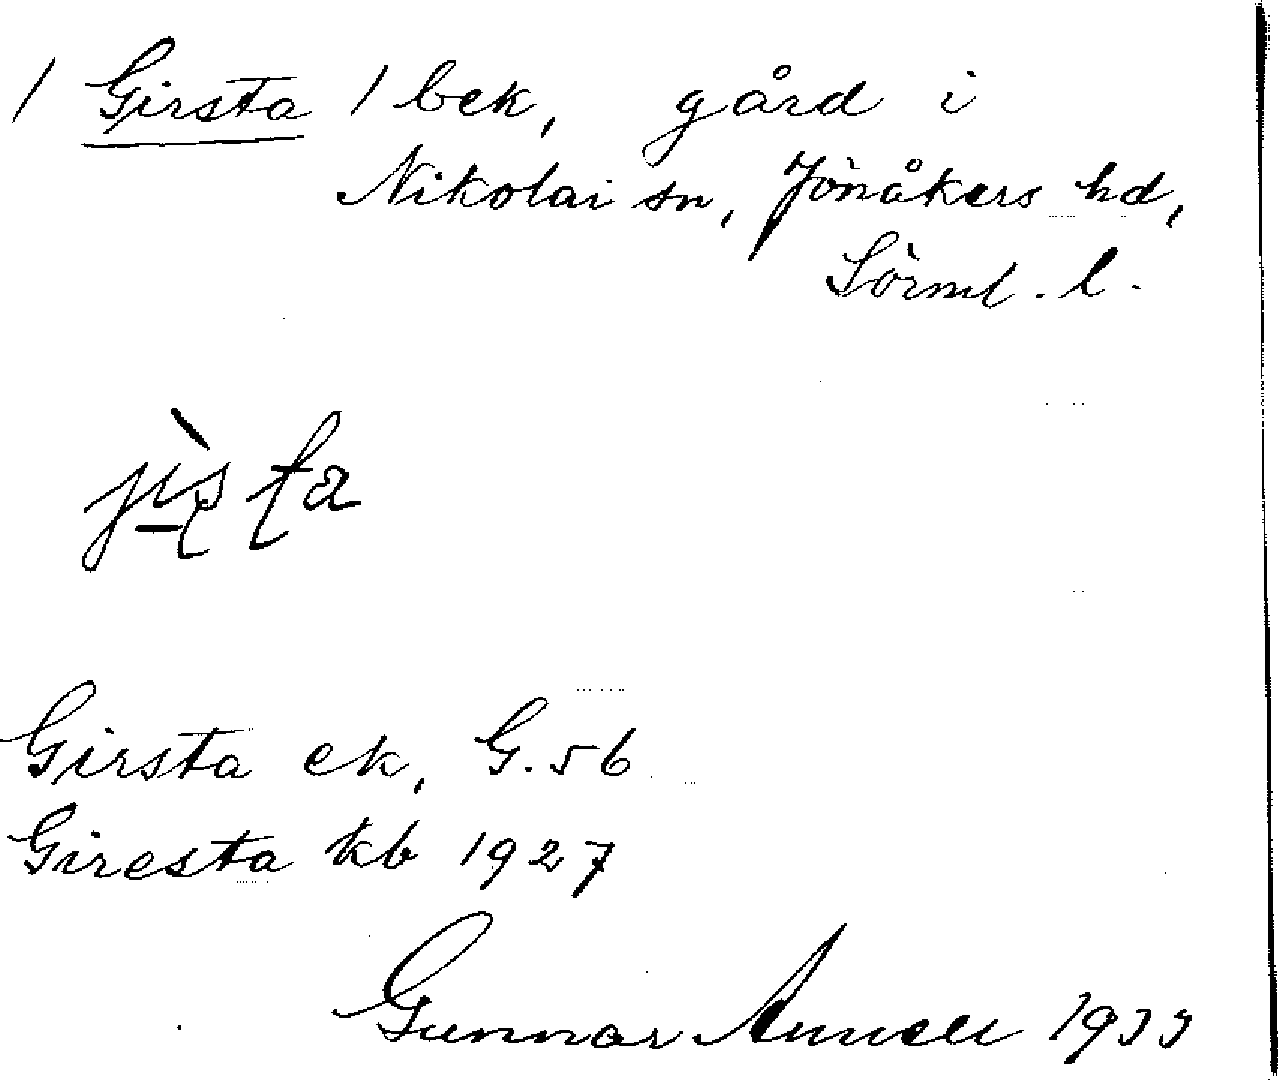 / Girsta / bek, gård i
Nikolai sn, Jönåkers hd,
Sörml. l.
Girsta ek, G. 56
Giresta kb 1927
Gunnar Annell 1933